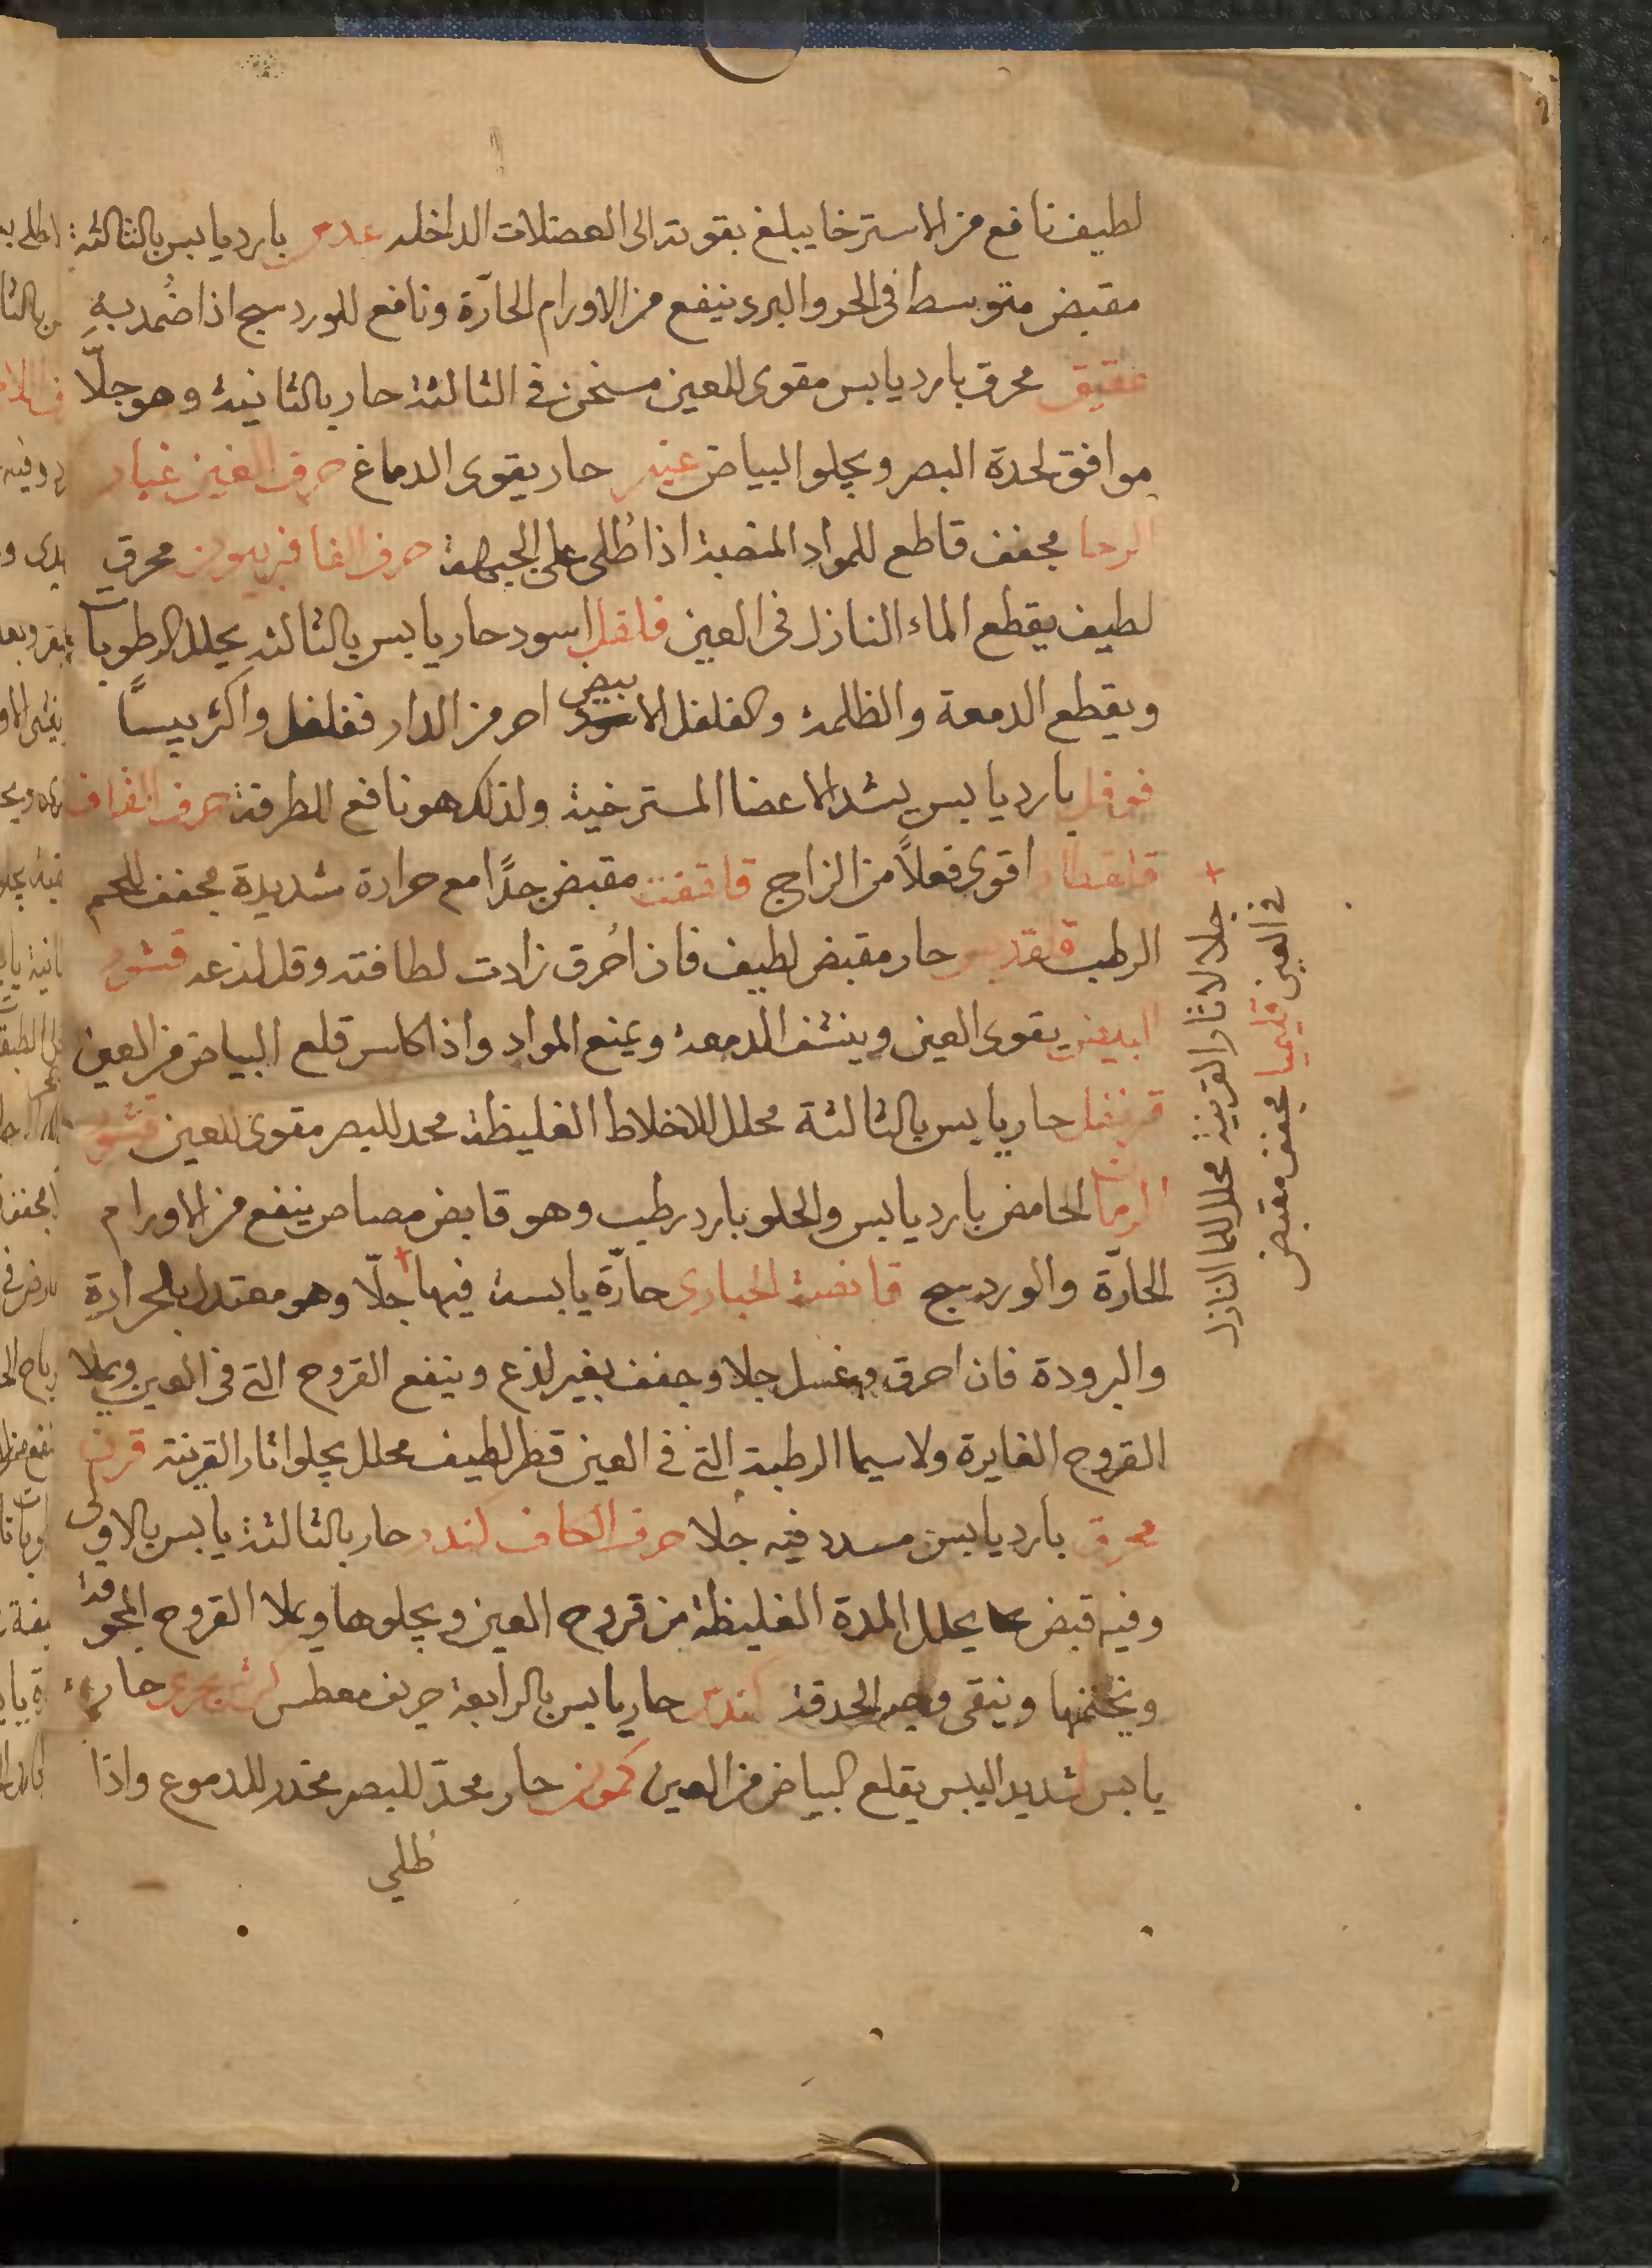 لطيف نافع من الاسترخا يبلغ بقوته الى العضلات الداخله عدس بارد يابس بالثالثة
مقبض متوسط فى الحر والبرد ينفع من الاورام الحارّة ونافع للوردينج اذا ضُمد به
عقيق محرق بارد يابس مقوى للعين مسخن فى الثالثة حار بالثانية وهو جلّا
موافق لحدة البصر ويجلو البياض عنبر حار يقوى الدماغ حرف الغين غبار
الرحا مجفف قاطع للمواد المنصبة اذا طُلى على الجبهة حرف الفا فربيون محرق
لطيف يقطع الماء النازل فى العين فلفل اسود حار يابس بالثالثه يحلل الرطوبات
ويقطع الدمعة والظلمة والفلفل الابيض احر من الدار فلفل واكثر يبسًا
فوفل بارد يابس يشد الاعضا المسترخية ولذلك هو نافع للطرفة حرف القاف
قلقطار اقوى فعلاً من الزاج قلقنت مقبض جدًا مع حرارة شديدة مجفف للحم
الرطب قلقديس حار مقبض لطيف فان اُحرق زادت لطافته وقل لذعه قشور
البيض يقوى العين وينشف الدمعة ويمنع المواد واذا كلس قلع البياض من العين
قرنفل حار يابس بالثالثة محلل للاخلاط الغليظة محد للبصر مقوى للعين قشور
الرمان الحامض بارد يابس والحلو بارد رطب وهو قابض مصاص ينفع من الاورام
الحارّة والوردينج قانصة الحبارى حارّة يابسة فيها جلّا وهو معتدل بالحرارة
والبرودة فان احرق وغسل جلا وجفف بغير لذع وينفع القروح التى فى العين ويملا
القروح الغايرة ولاسيما الرطبة التى فى العين قطر لطيف محلل يجلو اثار القرنية قرن
محرق بارد يابس مسدد فيه جلا حرف الكاف كندر حار بالثالثة يابس بالاولى
وفيه قبض يحلل المدة الغليظة من قروح العين ويجلوها ويملا القروح المجوفة
ويختمها وينقى الحدقة كندس حار يابس بالرابعة حريف معطس حار
يابس شديد اليبس يقلع البياض من العين كمون حار محدّ للبصر مخدر للدموع واذا
طلي
+ جلا لاثار القرنية محلل للما النازل
فى العين قليميا مجفف مقبض